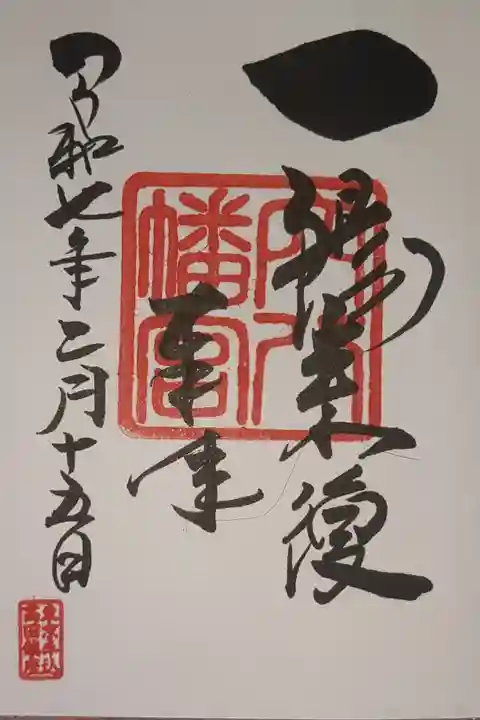 一陽来復
穴八
幡宮
奉拝
令和七年二月十五日